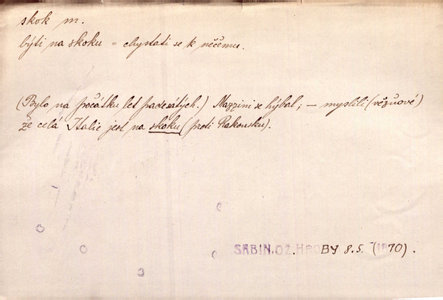 skok m.
býti na skoku = chystati se k něčemu.
(Bylo na počátku let padesátých.) Mazzini se hýbal, – myslili (vězňové)
že celá Italie jest na skoku (proti Rakousku).
SABIN. OŽ. HROBY 8.5. (1870).